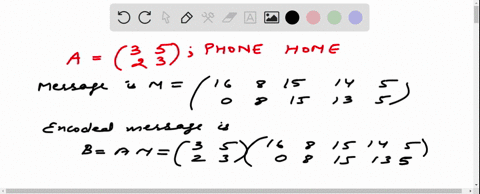 A = (3 5 ; PHONE HOME
2 3)
Message is M = (16 8 15 14 5
0 8 15 13 5)
Encoded message is
B = A M = (3 5 (16 8 15 14 5
2 3) 0 8 15 13 5)